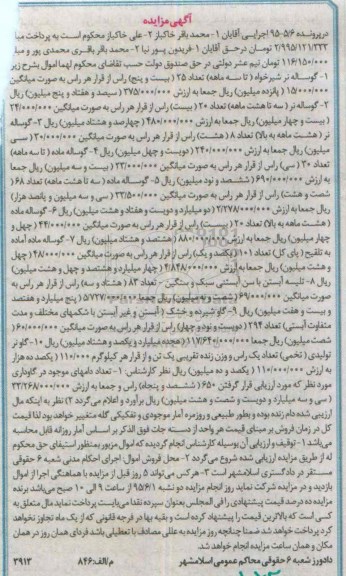 آگهی مزایده
در پرونده ۹۵-۵/۶ اجرایی آقایان ۱-محمد باقر خاکباز ۲-علی خاکباز محکوم است به پرداخت مبلغ
۲/۹۹۵/۱۲۱/۳۳۲ تومان در حق آقایان ۱-فریدون پور نیا ۲-محمد باقر باقری محمدی پور و مبلغ
۱۱۶/۱۵۰/۰۰۰ تومان نیم عشر دولتی در حق صندوق دولت حسب تقاضای محکوم لهما اموال بشرح زیر
۱-گوساله نر شیرخواه (تا سه ماهه) تعداد ۲۵ (بیست و پنج) راس از قرار هر راس به صورت میانگین
۱۵/۰۰۰/۰۰۰ (پانزده میلیون ریال جمعا به ارزش ۳۷۵/۰۰۰/۰۰۰ (سیصد و هفتاد و پنج میلیون) ریال
۲-گوساله نر (سه تا هشت ماهه) تعداد ۲۰ (بیست) راس از قرار هر راس به صورت میانگین ۲۴/۰۰۰/۰۰۰
(بیست و چهار میلیون) ریال جمعا به ارزش ۴۸۰/۰۰۰/۰۰۰ (چهارصد و هشتاد میلیون) ریال ۳-گوساله
نر (هشت ماهه به بالا) تعداد ۸ (هشت) راس از قرار هر راس به صورت میانگین ۳۰/۰۰۰/۰۰۰ (سی
میلیون) ریال جمعا به ارزش ۲۴۰/۰۰۰/۰۰۰ (دویست و چهل میلیون) ریال ۴-گوساله ماده (تا سه ماهه)
تعداد ۳۰ (سی) راس از قرار هر راس به صورت میانگین ۲۳/۰۰۰/۰۰۰ (بیست و سه میلیون) ریال جمعا
به ارزش ۶۹۰/۰۰۰/۰۰۰ (ششصد و نود میلیون) ریال ۵-گوساله ماده (سه تا هشت ماهه) تعداد ۶۸ (
شصت و هشت) راس از قرار هر راس به صورت میانگین ۳۳/۵۰۰/۰۰۰ (سی و سه میلیون و پانصد هزار)
ریال جمعا به ارزش ۲/۲۷۸/۰۰۰/۰۰۰ (دو میلیارد و دویست و هفتاد و هشت میلیون) ریال ۶-گوساله ماده
(هشت ماهه به بالا) تعداد ۲۰ (بیست) راس از قرار هر راس به صورت میانگین ۴۴/۰۰۰/۰۰۰ (چهل و
چهار میلیون) ریال جمعا به ارزش ۸۸۰/۰۰۰/۰۰۰ (هشتصد و هشتاد میلیون) ریال ۷-گوساله ماده آماده
به تلقیح (پای کل) تعداد ۱۰۱ (یکصد و یک) راس از قرار هر راس به صورت میانگین ۴۸/۰۰۰/۰۰۰ (چهل
و هشت میلیون) ریال جمعا به ارزش ۴/۸۴۸/۰۰۰/۰۰۰ (چهار میلیارد و هشتصد و چهل و هشت میلیون)
ریال ۸-تلیسه آبستن با سن آبستنی سبک و سنگین - تعداد ۸۳ (هشتاد و سه) راس از قرار هر راس به
صورت میانگین ۶۹/۰۰۰/۰۰۰ (شصت و نه میلیون) ریال جمعا ۵/۷۲۷/۰۰۰/۰۰۰ (پنج میلیارد و هفتصد
و بیست و هفت میلیون) ریال ۹-گاو شیرده و خشک (آبستن و غیر آبستن با شکمهای مختلف و مدت
متفاوت آبستنی) تعداد ۲۹۴ (دویست و نود و چهار) راس از قرار هر راس به صورت میانگین ۶۰/۰۰۰/۰۰۰ (
شصت میلیون) ریال جمعا ۱۷/۶۴۰/۰۰۰/۰۰۰ (هفده میلیارد و یکصد و هشتاد میلیون) ریال ۱۰-گاو نر
تولیدی (تخمی) تعداد یک راس و وزن زنده تقریبی یک تن و از قرار هر کیلوگرم ۱۱۰/۰۰۰ (یکصد ده هزار
به ارزش ۱۱۰/۰۰۰/۰۰۰ (یکصد و ده میلیون) ریال نظر کارشناس: ۱-تعداد دامهای موجود در گاوداری
مورد نظر که مورد ارزیابی قرار گرفتن ۶۵۰ (ششصد و پنجاه) راس و جمعا به ارزش ۳۳/۲۶۸/۰۰۰/۰۰۰
(سی و سه میلیارد و دویست و شصت و هشت میلیون) ریال برآورد و اعلام می گردد ۲) نظر به اینکه مال
ارزیابی شده دام زنده بوده و بطور طبیعی و روزمره آمار موجودی و تفکیکی گله متغییر خواهد بود لذا قیمت
کل در زمان فروش بر مبنای قیمت هر واحد از دسته جات فوق الذکر بر اساس آمار روزانه قابل محاسبه
می باشد ۱-توقیف و ارزیابی آن بوسیله کارشناس انجام گردیده که اموال مزبور بمنظور استیفای حق محکوم
له از طریق مزایده ارزیابی شده شروع می گردد ۲-محل فروش اموال اجرای احکام مدنی شعبه ۶ حقوقی
مستقر در دادگستری اسلامشهر است ۳-هر کس می تواند ۵ روز قبل از مزایده با هماهنگی اجرا از اموال
بازدید و در مزایده شرکت نماید روز انجام مزایده دو شنبه ۹۵/۶/۱ از ساعت ۹ الی ۱۰ صبح می باشد برنده
مزایده ده درصد قیمت پیشنهادی را فی المجلس بعنوان سپرده نقدا می بایست پرداخت نماید مال متعلق به
کسی است که بالاترین قیمت را پیشنهاد کرده است و بقیه بها در فرجه قانونی که از یک ماه تجاوز نخواهد
کرد پرداخت خواهد شد ضمنا چنانچه روز مزایده به عللی مصادف با تعطیلی باشد فردای همان روز در همان
مکان و همان ساعت مزایده انجام خواهد شد.
دادورز شعبه ۶ حقوقی محاکم عمومی اسلامشهر م/الف:۸۴۶ ۳۹۱۳